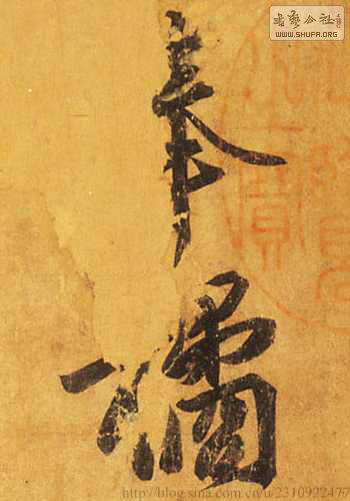 WWW.SHUFA.ORG
奉
橘
http://blog.sina.com.cn/u/2310922477